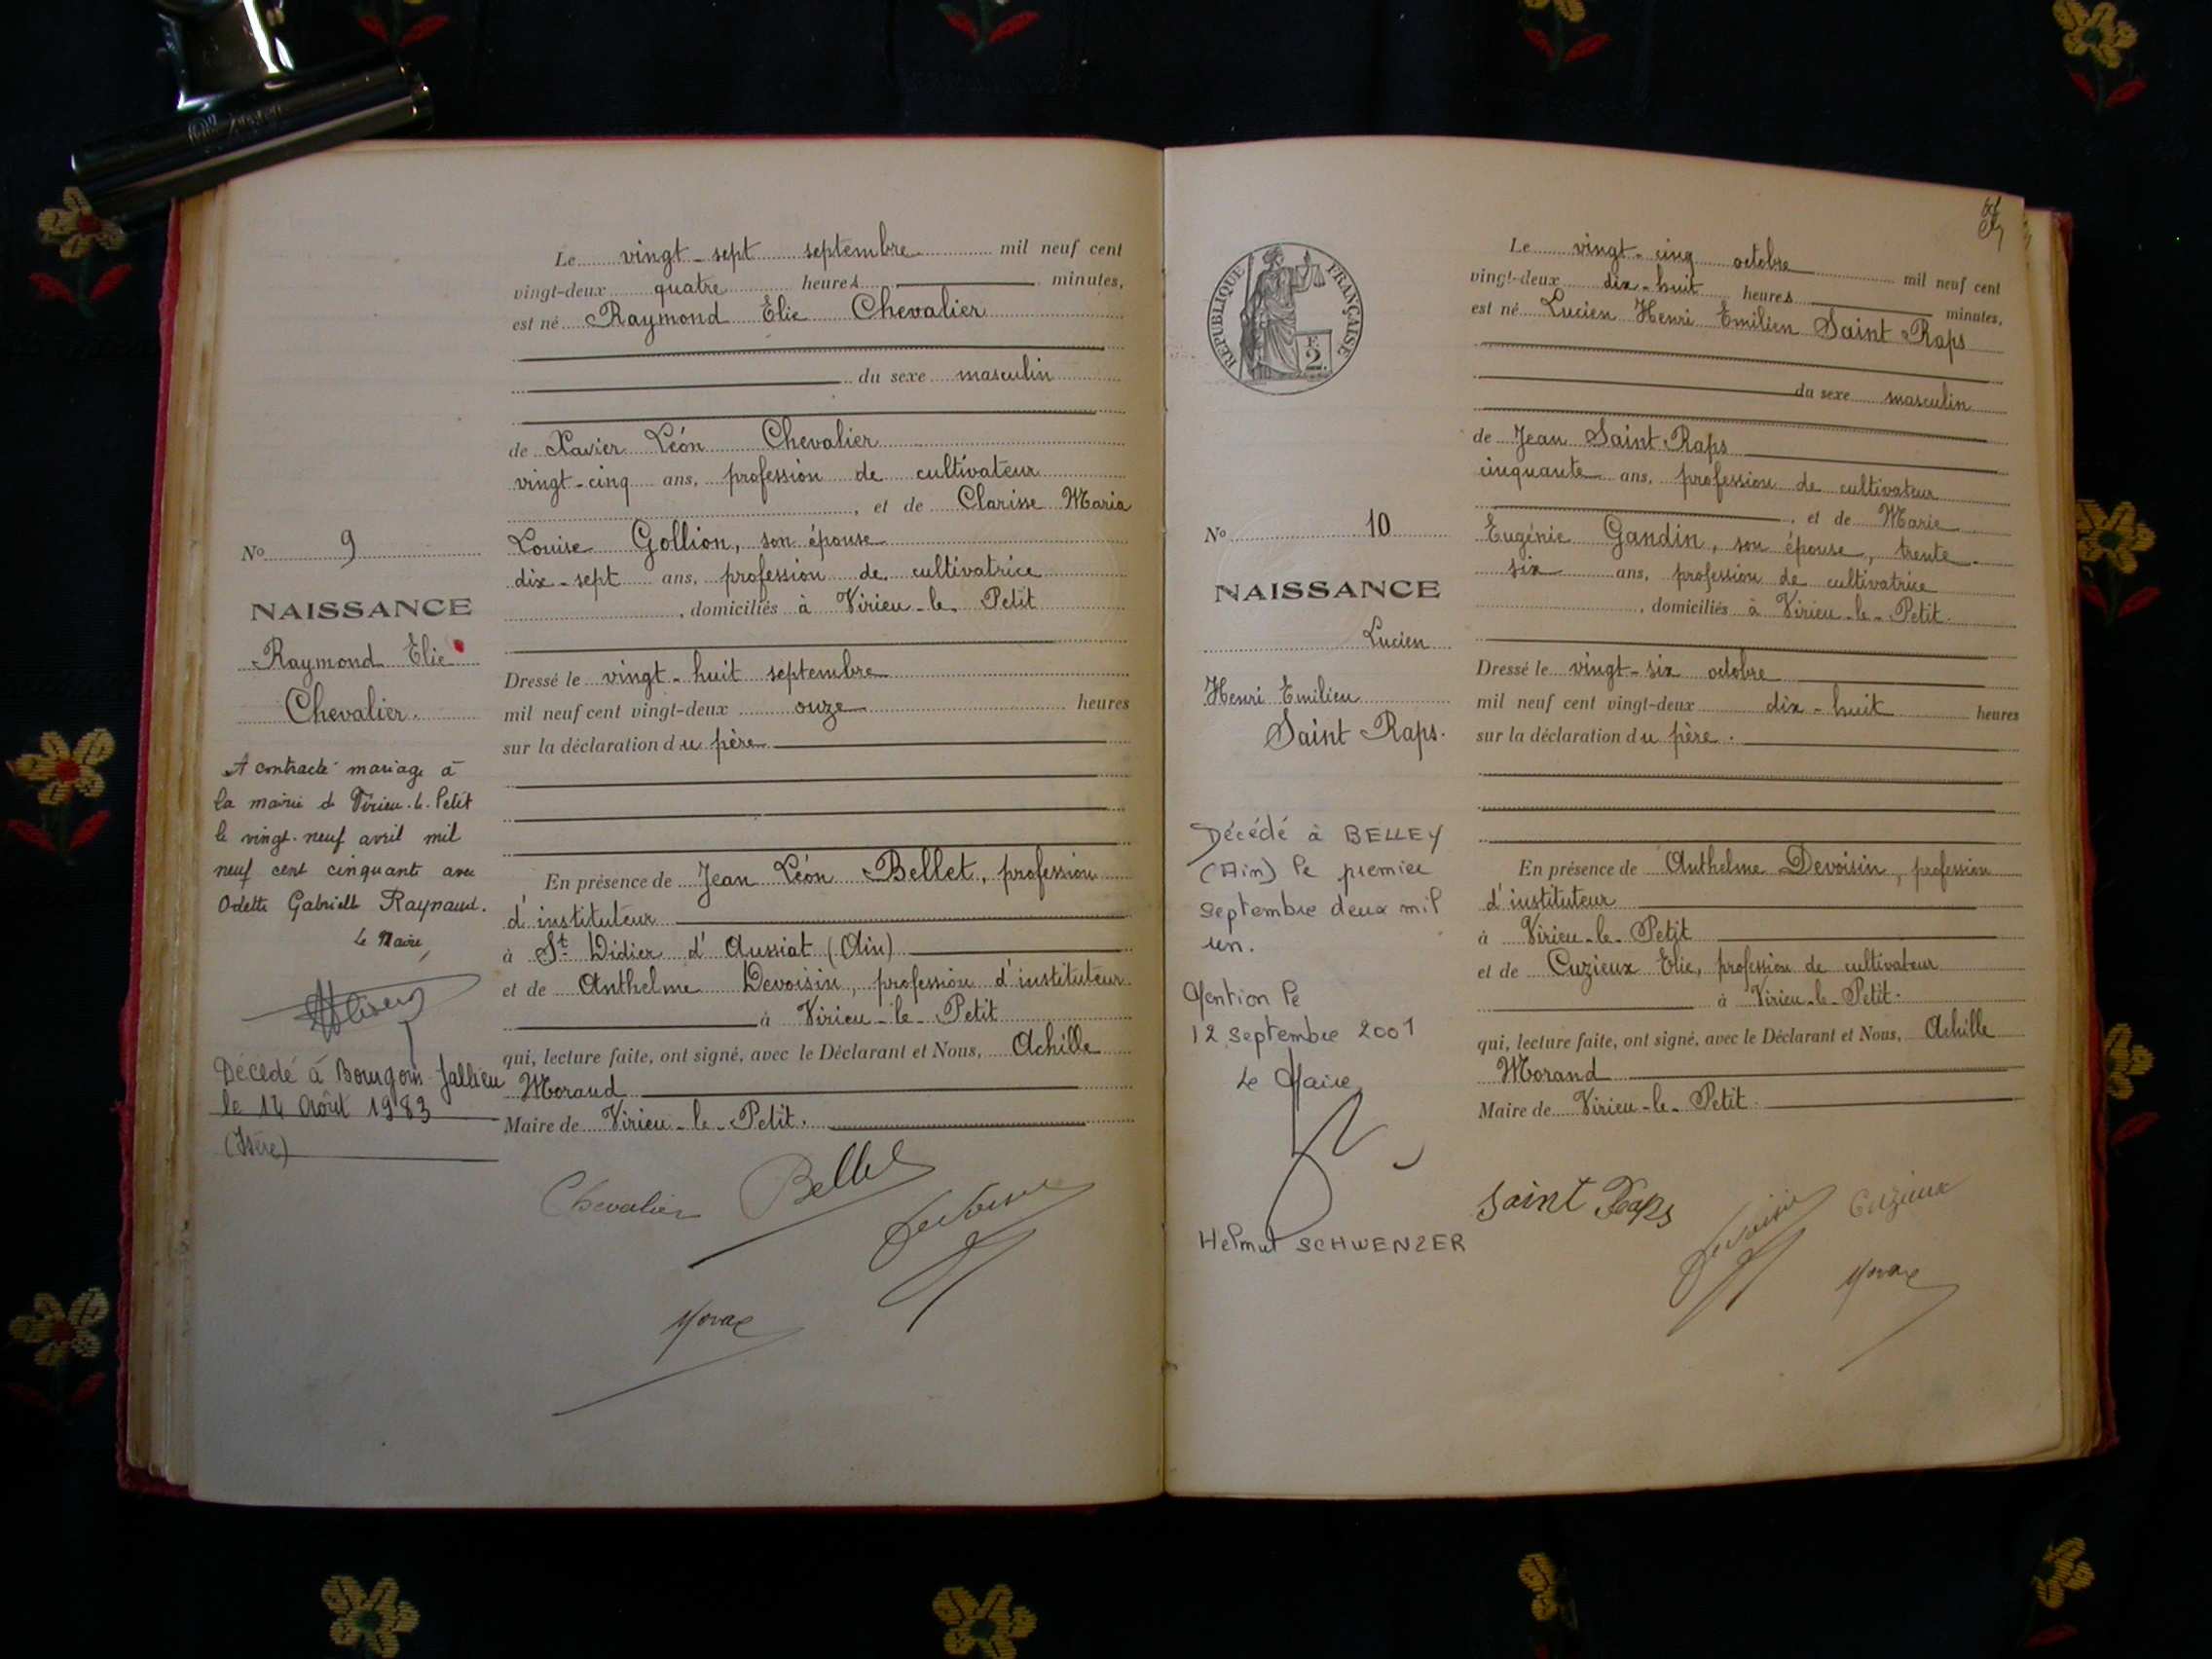 Le vingt-sept septembre mil neuf cent
vingt-deux quatre heures minutes,
est né Raymond Elie Chevalier
du sexe masculin
de Xavier Léon Chevalier
vingt-cinq ans, profession de cultivateur
, et de Clarisse Maria
Louise Gollion, son épouse
dix-sept ans, profession de cultivatrice
, domiciliés à Virieu-le-Petit
Dressé le vingt-huit septembre
mil neuf cent vingt-deux onze heures
sur la déclaration du père
En présence de Jean Léon Bellet, profession
d'instituteur
à St Didier d'Aussiat (Ain)
et de Anthelme Devoisin, profession d'instituteur
à Virieu-le-Petit
qui, lecture faite, ont signé, avec le Déclarant et Nous, Achille
Morand
Maire de Virieu-le-Petit.
Chevalier Bellet
Devoisin
Morand
No 9
NAISSANCE
Raymond Elie
Chevalier.
A contracté mariage à
la mairie de Virieu-le-Petit
le vingt-neuf avril mil
neuf cent cinquante avec
Odette Gabrielle Raynaud.
Le Maire,
Décédé à Bourgoin Jallieu
le 14 Août 1983
(Isère)
REPUBLIQUE FRANÇAISE
F.
2.
Le vingt-cinq octobre mil neuf cent
vingt-deux dix-huit heures minutes,
est né Lucien Henri Emilien Saint-Raps
du sexe masculin
de Jean Saint-Raps
cinquante ans, profession de cultivateur
, et de Marie
Eugénie Gandin, son épouse, trente-
six ans, profession de cultivatrice
, domiciliés à Virieu-le-Petit.
Dressé le vingt-six octobre
mil neuf cent vingt-deux dix-huit heures
sur la déclaration du père.
En présence de Anthelme Devoisin, profession
d'instituteur
à Virieu-le-Petit
et de Cuzieux Elie, profession de cultivateur
à Virieu-le-Petit.
qui, lecture faite, ont signé, avec le Déclarant et Nous, Achille
Morand
Maire de Virieu-le-Petit.
Saint Raps Devoisin Cuzieux
Morand
No 10
NAISSANCE
Lucien
Henri Emilien
Saint-Raps.
Décédé à BELLEY
(Ain) le premier
septembre deux mil
un.
Mention le
12 septembre 2001
Le Maire
Helmut SCHWENZER